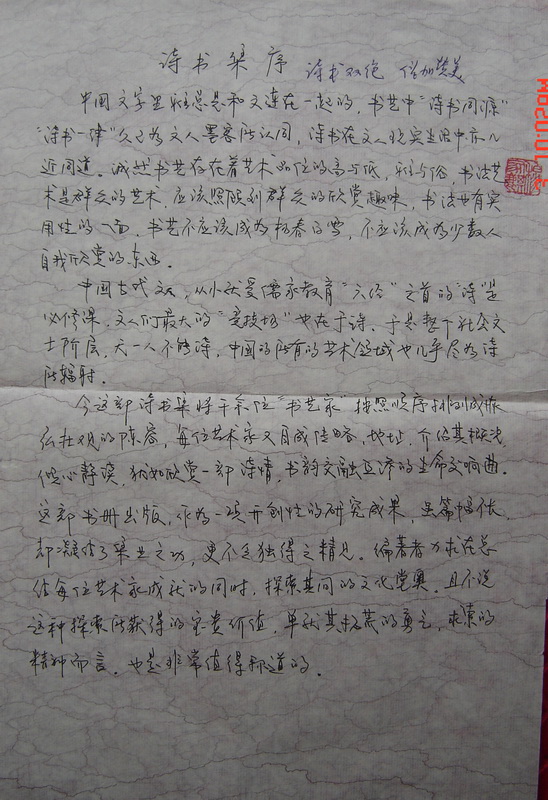 诗书集序 诗书双绝 俗加赞美
中国文字里我总是和文连在一起的，书艺中“诗书同源”
“诗书一律”久已为文人墨客所认同，诗书在文人现实生活中亦几
近同道。诚然书艺存在着艺术品位的高与低，雅与俗，书法艺
术是群众的艺术，应该照顾到群众的欣赏趣味，书法也有实
用性的一面，书艺不应该成为杨春白雪，不应该成为少数人
自我欣赏的东西。
中国古代文人，从小就受儒家教育“六经”之首的“诗”是
必修课，文人们最大的“竞技场”也在于诗，于是整个社会文
士阶层，无一人不能诗，中国的所有的艺术领域也几乎尽为诗
所辐射。
今这部诗书集将千余位“书艺家”按照顺序排列成恢
弘壮观的阵容，每位艺术家又自成阵容，地址，介绍其概况
但心静读，犹如欣赏一部诗情，书韵交融互济的生命交响曲。
这部书册出版，作为一项开创性的研究成果，虽篇幅
却凝结了集之功，更不乏独得之精见。编著者力求在总
结每位艺术家成就的同时，探索其同的文化堂奥。且不说
这种探索所获得的宝贵价值，单就其拓荒的勇气，求索的
精神而言，也是非常值得称道的。